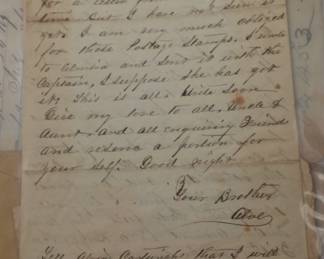 for a
time but I have not seen it
yet. I am very much obliged
for those Postage Stamps. I wrote
to and sent it with the
Captain, I suppose she has got
it. This is all. Write soon
Give my love to all. Uncle &
Aunt. And all enquiring Friend
and reserve a portion for
your self. Good night
Your Brother
Tell that I will